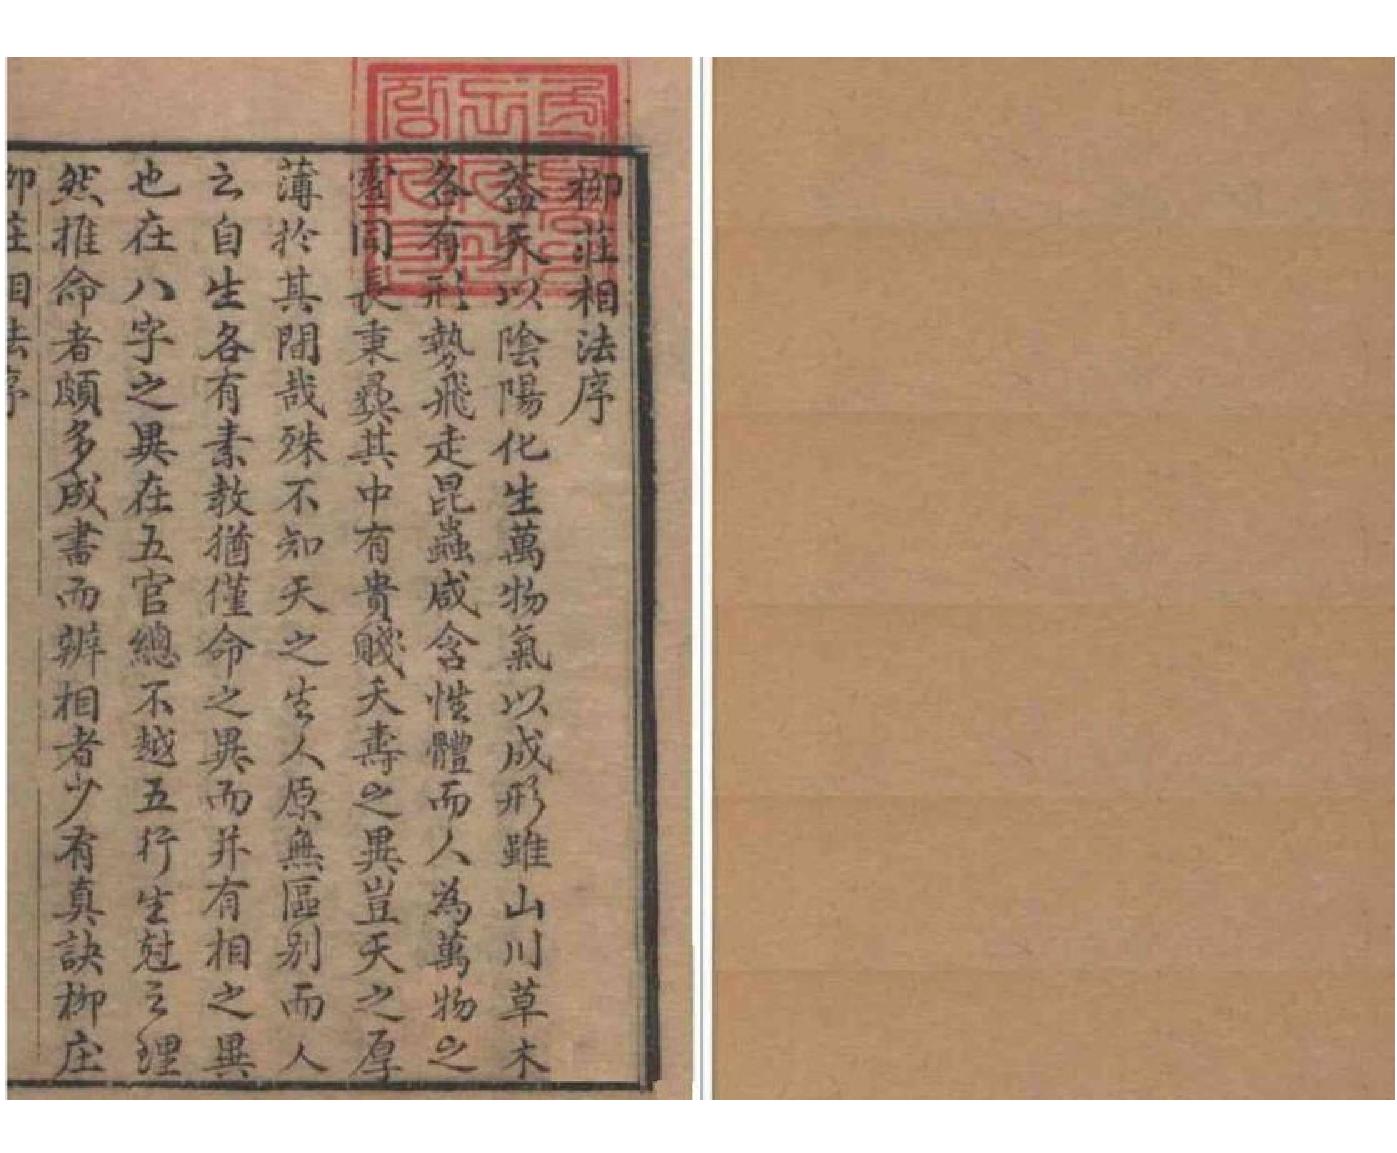 柳莊相法序
葢天以陰陽化生萬物氣以成形雖山川草木
各有形勢飛走昆蟲咸含性體而人為萬物之
靈同長秉彛其中有貴賤夭壽之異豈天之厚
薄於其間哉殊不知天之生人原無區别而人
云自生各有素教猶僅命之異而并有相之異
也在八字之異在五官總不越五行生尅之理
然推命者頗多成書而辨相者少有真訣柳庄
柳庄相法序